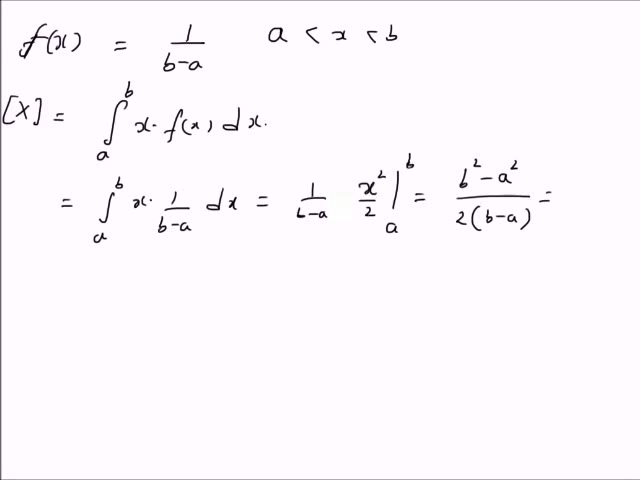 f(x) = 1/(b-a) a < x < b
[X] = ∫_a^b x · f(x) dx.
= ∫_a^b x · 1/(b-a) dx = 1/(b-a) x²/2 |_a^b = (b² - a²)/(2(b-a)) =